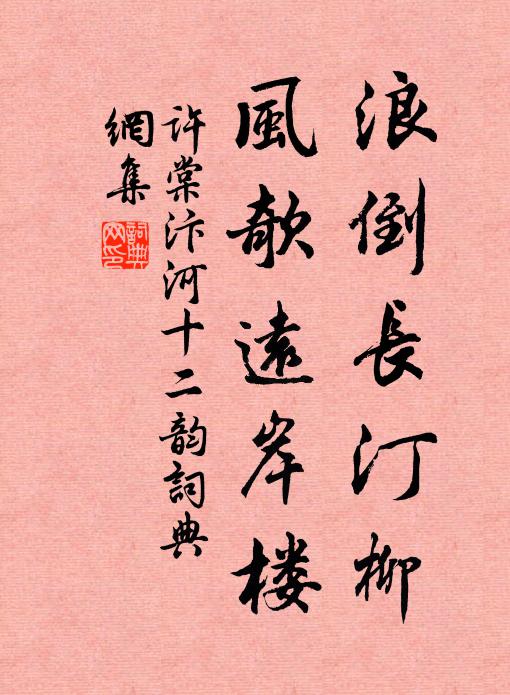 浪倒長汀柳
風欹遠岸楼
许棠汴河十二韵詞典
網集
詞典
网印